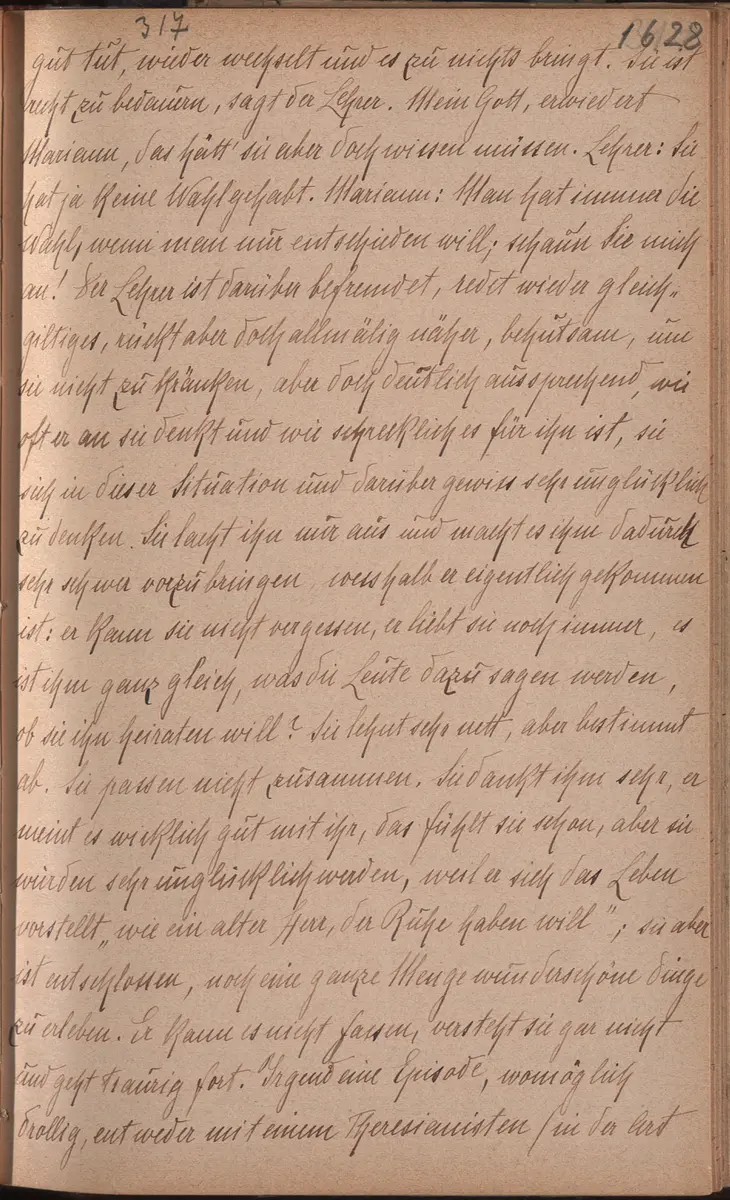 317
1628
gut tut, wieder wechselt und es zu nichts bringt. Sie ist
recht zu bedauern, sagt der Lehrer. Mein Gott, erwiedert
Mariann, das hätt' sie aber doch wissen müssen. Lehrer: Sie
hat ja keine Wahl gehabt. Mariann: Man hat immer die
Wahl, wenn man nur entschieden will; schaun Sie mich
an! Der Lehrer ist darüber befremdet, redet wieder gleich„
giltiges, rückt aber doch allmälig näher, behutsam, um
sie nicht zu kränken, aber doch deutlich aussprechend, wie
oft er an sie denkt und wie schrecklich es für ihn ist, sie
sich in dieser Situation und darüber gewiss sehr unglücklich
zu denken. Sie lacht ihn nur aus und macht es ihm dadurch
sehr schwer vorzubringen, wesshalb er eigentlich gekommen
ist: er kann sie nicht vergessen, er liebt sie noch immer, es
ist ihm ganz gleich, was die Leute dazu sagen werden,
ob sie ihn heiraten will? Sie lehnt sehr nett, aber bestimmt
ab. Sie passen nicht zusammen. Sie dankt ihm sehr, er
meint es wirklich gut mit ihr, das fühlt sie schon, aber sie
würden sehr unglücklich werden, weil er sich das Leben
vorstellt „wie ein alter Herr, der Ruhe haben will"; sie aber
ist entschlossen, noch eine ganze Menge wunderschöne Dinge
zu erleben. Er kann es nicht fassen, versteht sie gar nicht
und geht traurig fort. Irgend eine Episode, womöglich
drollig, entweder mit einem Theresianisten (in der Art